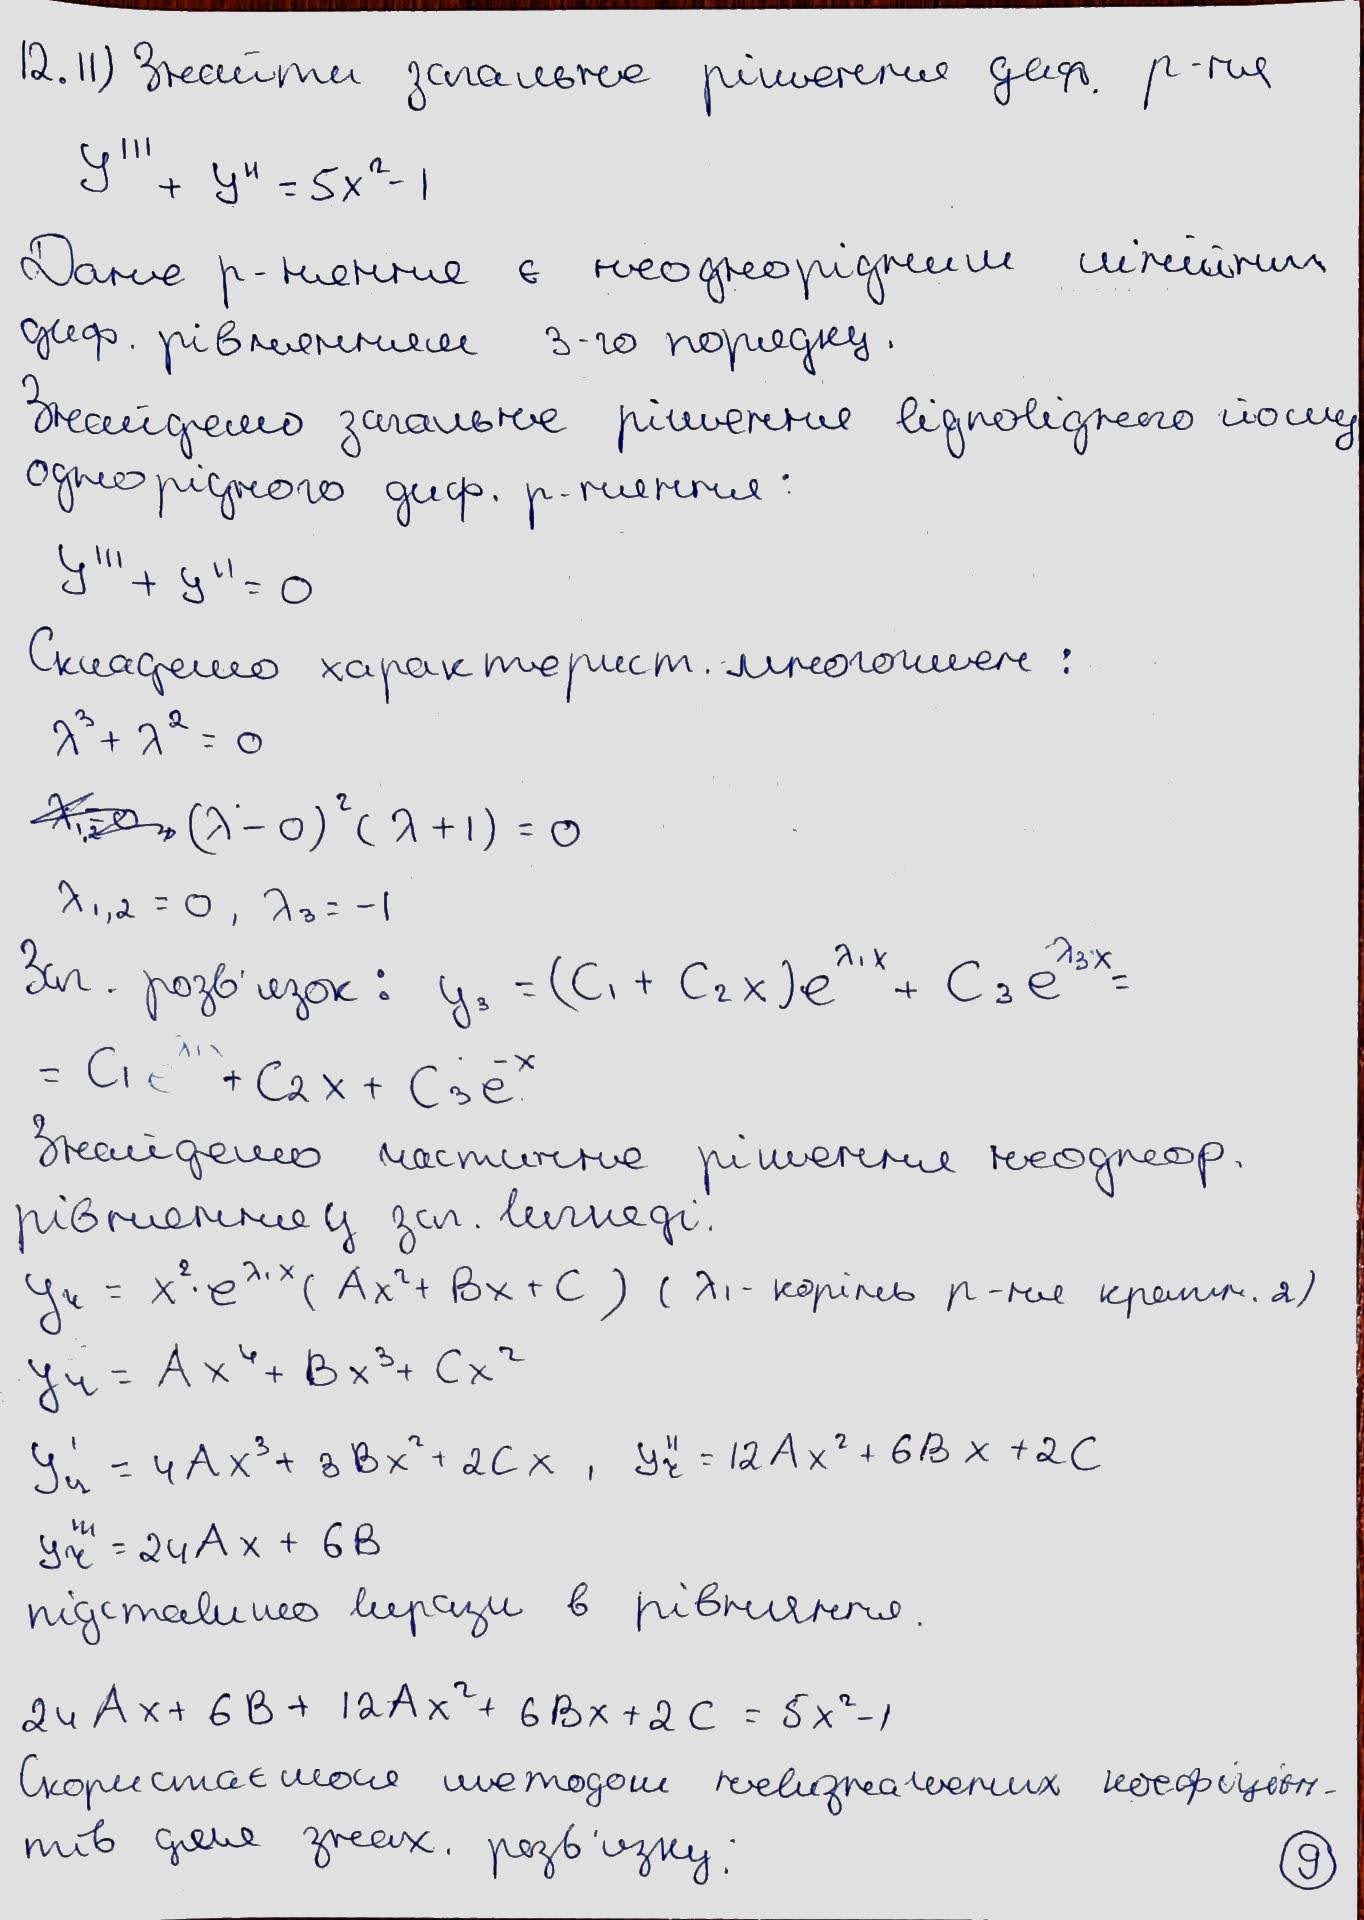 12.11) Знайти загальне рішення диф. р-ня
y''' + y'' = 5x² - 1
Дане р-няння є неоднорідним лінійним
диф. рівнянням 3-го порядку.
Знайдемо загальне рішення відповідного йому
однорідного диф. р-няння:
y''' + y'' = 0
Складемо характерист. многочлен:
λ³ + λ² = 0
(λ - 0)² (λ + 1) = 0
λ₁,₂ = 0, λ₃ = -1
Заг. розв'язок: y₃ = (C₁ + C₂x)e^{λ₁x} + C₃e^{λ₃x} =
= C₁ + C₂x + C₃e^{-x}
Знайдемо частинне рішення неоднор.
рівняння у заг. вигляді.
yч = x²·e^{λ₁x}(Ax² + Bx + C) (λ₁ - корінь р-ня кратн. 2)
yч = Ax⁴ + Bx³ + Cx²
yч' = 4Ax³ + 3Bx² + 2Cx, yч'' = 12Ax² + 6Bx + 2C
yч''' = 24Ax + 6B
підставимо вирази в рівняння.
24Ax + 6B + 12Ax² + 6Bx + 2C = 5x² - 1
Скористаємося методом невизначених коефіцієн-
тів для знах. розв'язку:
9